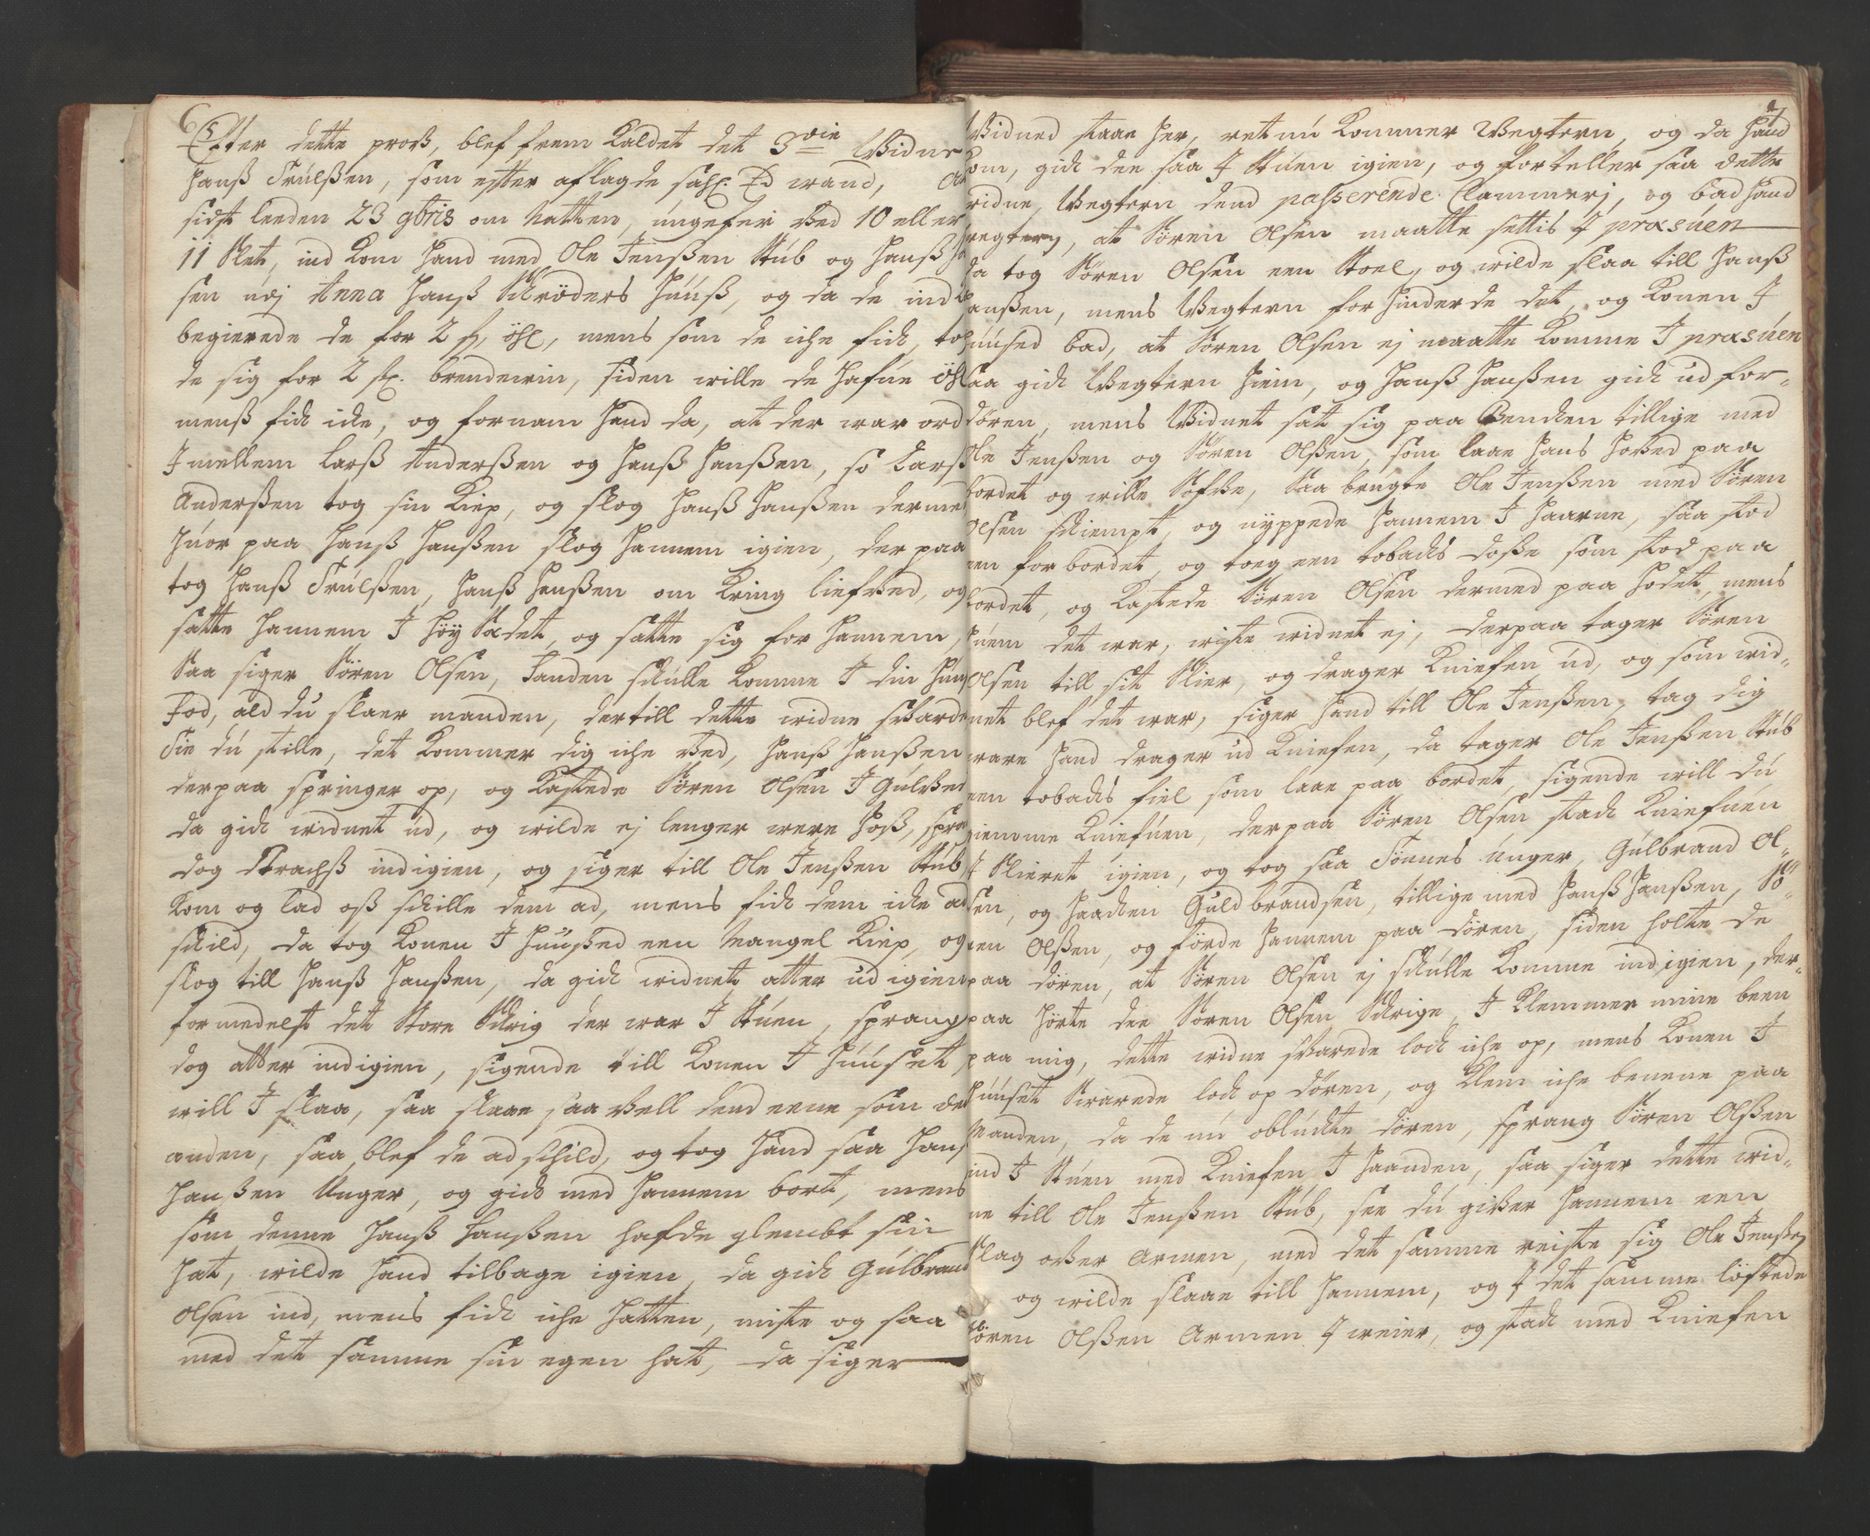 6
Efter dette pross, blef frem kaldet det 3die Vidne
Hanß Trulßen, som efter aflagde sahl: Ed vand, at
sidst leeden 23 9bris om Natten, ungefer ved 10 eller
11 Slet, ind kom hand med Ole Jenßen Stub og Hanß
sen udj Anna Hanß Schröders Huuß, og da de ind
begierede de for 2 s, öhl, mens som de iche fich, to
de sig for 2 sk. brendewin, siden wille de hafue öhl
menß fich iche, og fornam hand da, at der war ord
Imellem Larß Anderßen og Hanß Hanßen, so Larß
Anderßen tog sin Kiep, og slog Hanß Hanßen dermed
huor paa Hanß Hanßen slog hannem igien, der paa
tog Hanß Trulßen, Hanß Hanßen om kring liefved, og
satte hannem I Höy Sædet, og satte sig for hannem,
Saa siger Sören Olsen, Fanden schulle komme I din
Fod, ald du slaer manden, dertill dette vidne svarde
Tie du stille, det kommer dig iche ved, Hanß Hanßen
derpaa springer op, og kastede Sören Olsen I Gulvet
da gich vidnet ud, og wilde ej lenger were hoß, spra
dog Strachß ind igien, og siger till Ole Jenßen Stub
kom og lad oß schille dem ad, mens fich dem iche ad
schild, da tog konen I Huußed een Mangel Kiep, og
slog till Hanß Hanßen, da gich vidnet atter ud igien
formedelst det Store Schrig der war I Stuen, sprang
dog atter ind igien, sigende till konen I Huuset,
will I slaa, saa slaae saa vell dend eene som den
anden, saa blef de ad schild, og tog hand saa Hans
Hanßen Unger, og gich med hannem bort, mens
som denne Hanß Hanßen hafde glembt sin
hat, wilde hand tilbage igien, da gich Gulbrand
Olsen ind, mens fich iche hatten, miste og saa
med det samme sin egen hat, da siger
7
Vidned staae her, ret nu kommer Vegtern, og da hand
kom, gich dee saa I Stuen igien, og forteller saa dette
vidne, Vegtern dend passerende Clammerj, og bad hand
vegtern, at Sören Olsen maatte settis I præsuen
da tog Sören Olsen een Stoel, og wilde slaa till Hanß
Hanßen, mens Vegtern forhinderde det, og konen I
huused bad, at Sören Olsen ej maatte komme I præsuen
saa gich Vegtern hiem, og Hanß Hanßen gich ud for-
dören, mens Vidnet sat sig paa benchen tillige med
Ole Jenßen og Sören Olßen, som laae hans hoved paa
bordet og wille Söfve, Saa brugte Ole Jenßen med Sören
Olsen Skiempt, og nyppede hannem I haarne, saa stod
een for bordet, og toeg een tobachs doße som stod paa
bordet, og kastede Sören Olsen dermed paa hodet, mens
huem det war, viste vidnet ej, derpaa tager Sören
Olsen till sit Skier, og drager kniefen ud, og som vid-
net blef det war, siger hand till Ole Jenßen, tag dig
ware hand drager ud kniefen, da tager Ole Jenßen Stub
een tobachs fiel som laae paa bordet, sigende will du
giemme kniefuen, derpaa Sören Olsen stach kniefuen
I Skieret igien, og tog saa Tönnes Unger, Gulbrand Ol-
sen, og Haachen Guldbrandsen, tillige med Hanß Hanßen, Sö-
ren Olßen, og förde hannem paa dören, siden holte de
paa dören, at Sören Olsen ej schulle komme ind igien, der-
paa hörte dee Sören Olsen Schrige, I klemmer mine been
paa mig, dette vidne svarede loch iche op, mens konen I
huuset svarede loch op dören, og klem iche benene paa
Manden, da de nu obluchte dören, sprang Sören Olßen
ind I Stuen med kniefen I haanden, saa siger dette vid-
ne till Ole Jenßen Stub, see du gifver hannem een
slag ofver Armen, med det samme reiste sig Ole Jenßen
og wilde slaae till hannem, og I det samme löftede
Sören Olßen Armen I weier, og stach med kniefen